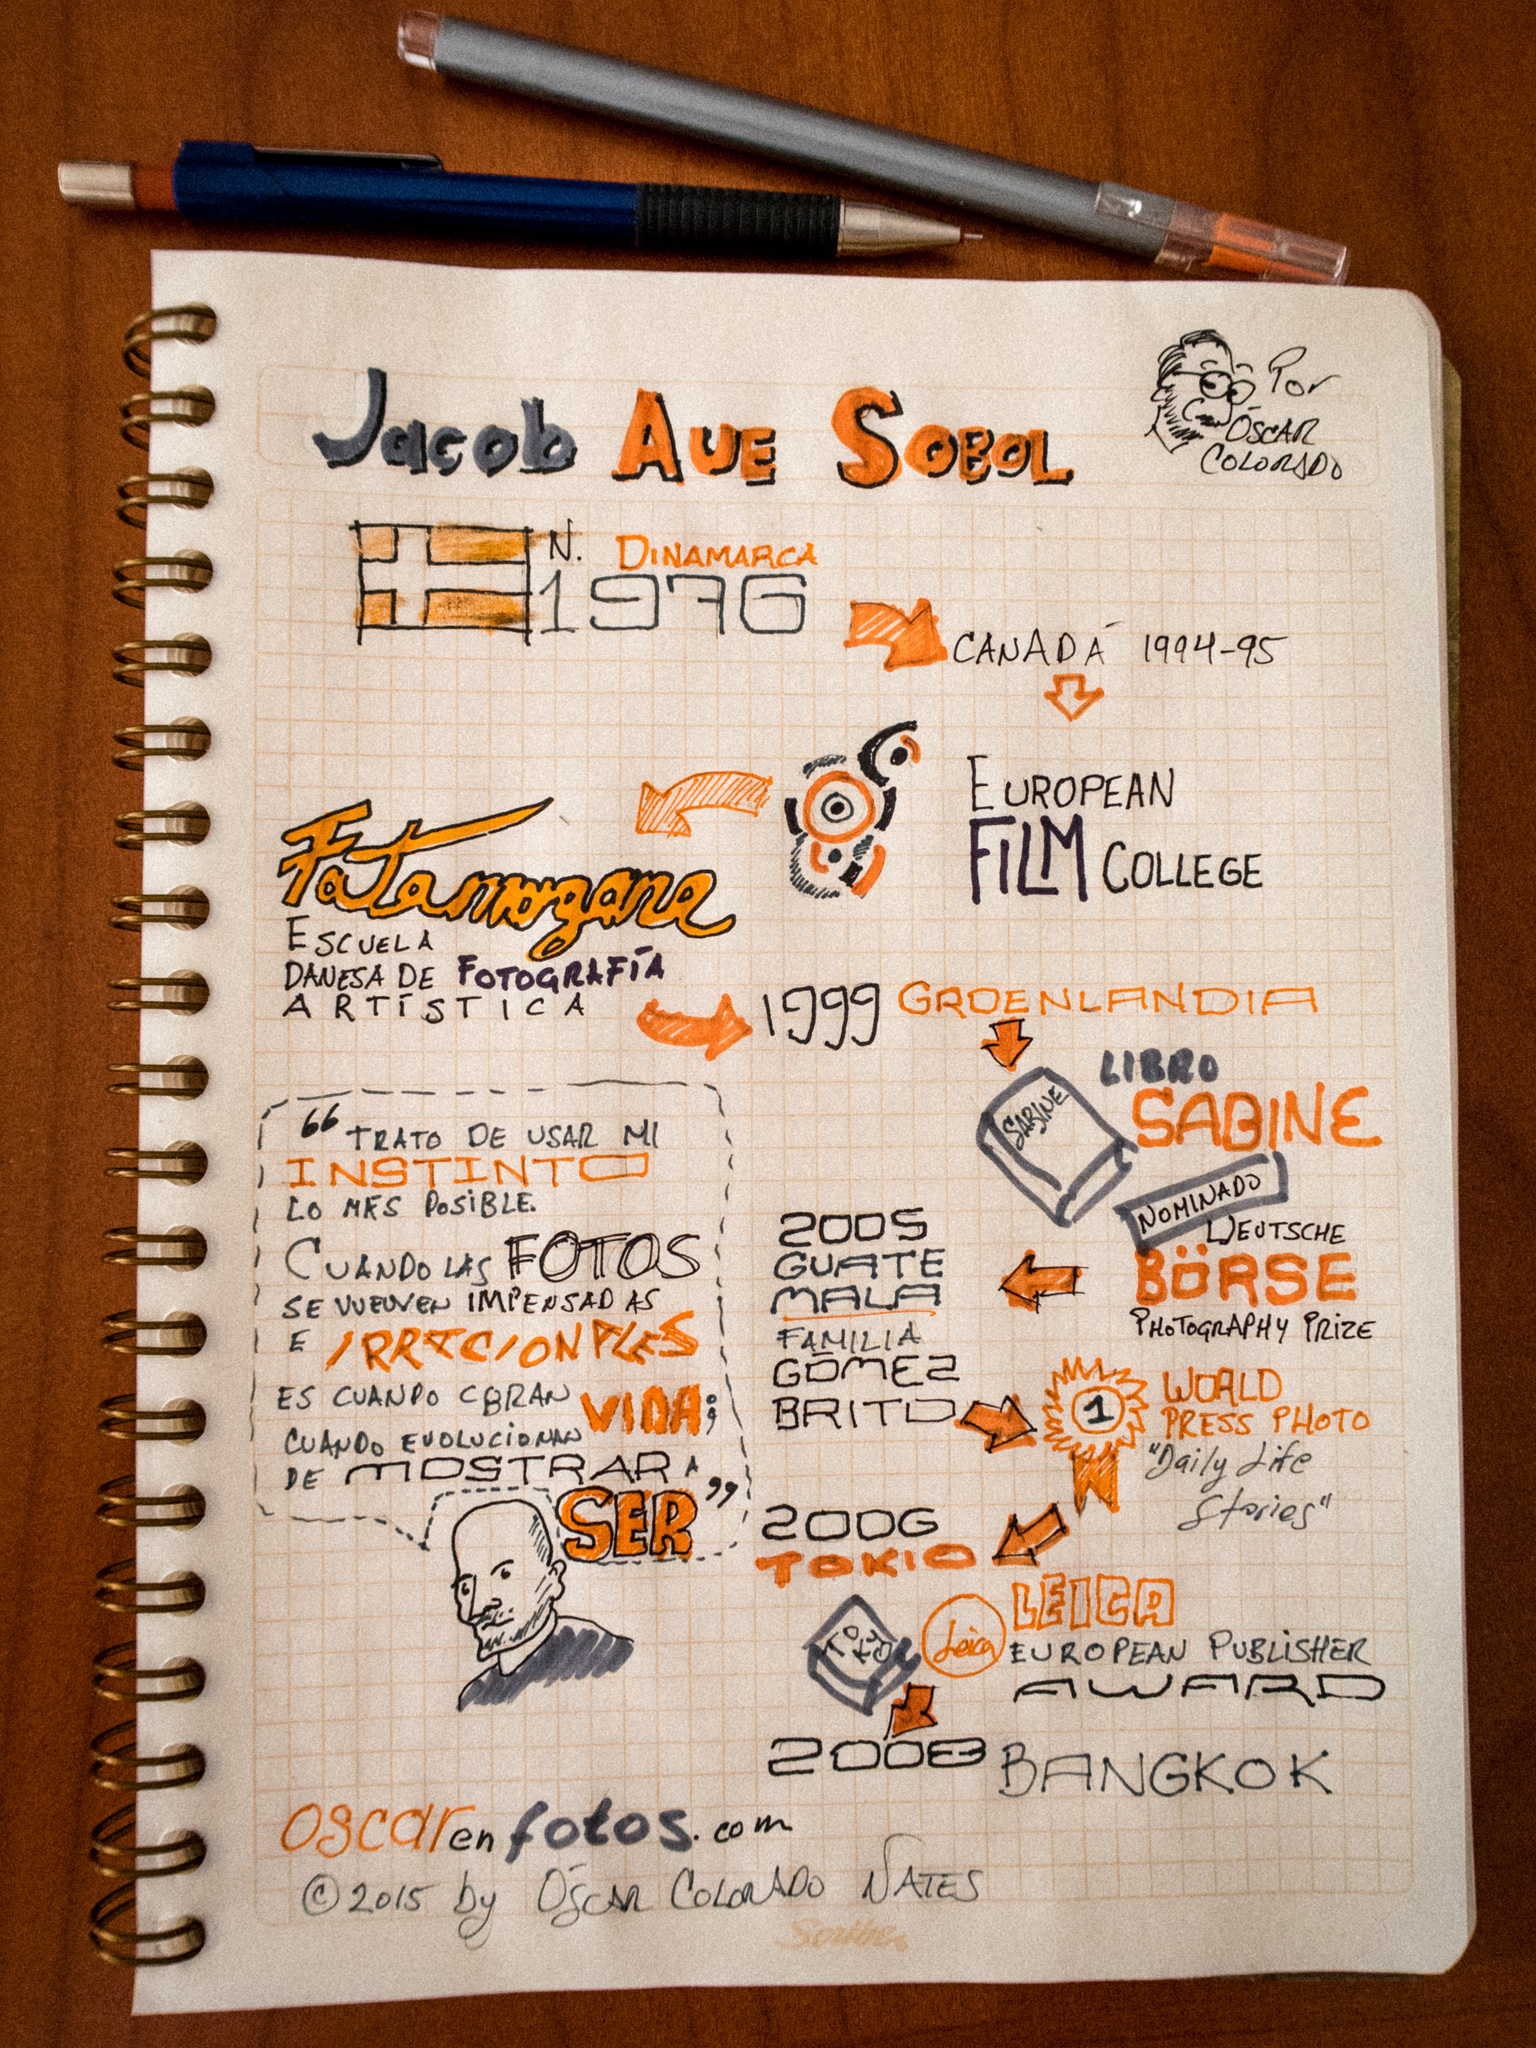 Jacob Aue Sobol
Por
Óscar
Colorado
N. Dinamarca
1976
Canadá 1994-95
European
Film College
Fatamorgana
Escuela
danesa de fotografía
artística
1999 Groenlandia
Libro
Sabine
Sabine
Nominado
Deutsche
Börse
Photography Prize
“Trato de usar mi
instinto
lo más posible.
Cuando las fotos
se vuelven impensadas
e irracionales
es cuando cobran vida;
cuando evolucionan
de mostrar a
ser”
2005
Guate
mala
familia
Gómez
Brito
1
World
Press Photo
"Daily Life
Stories"
2006
Tokio
Tokyo
Leica
Leica
European Publisher
Award
2008 Bangkok
oscarenfotos.com
©2015 by Óscar Colorado Nates
Scribe